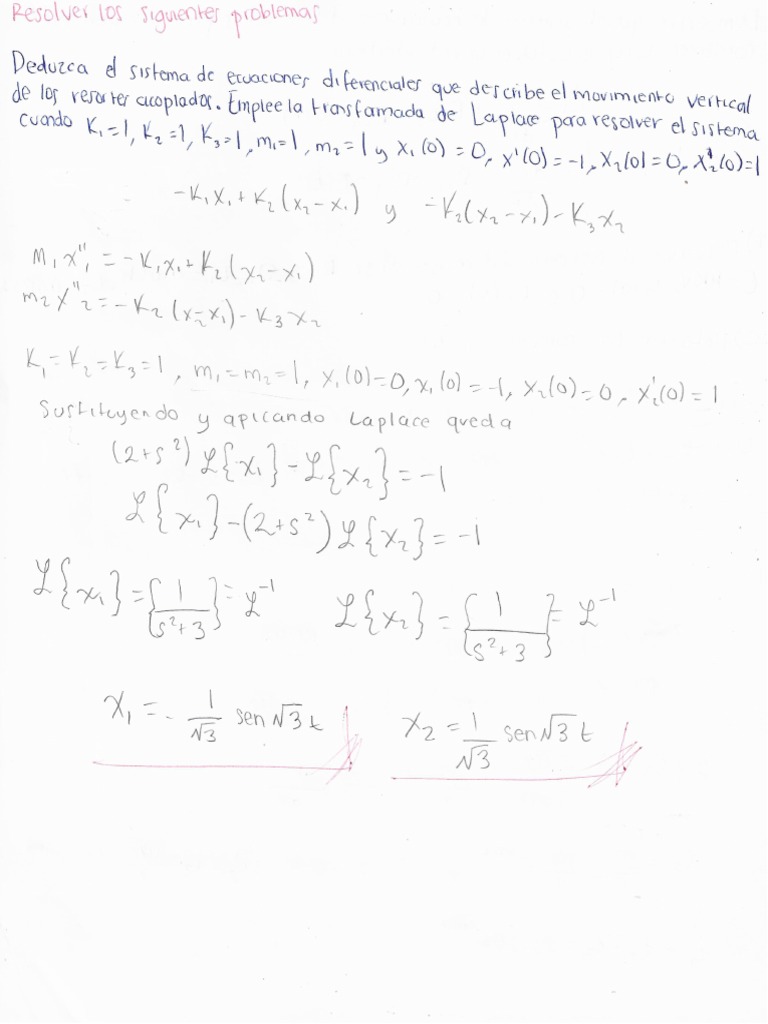 Resolver los siguientes problemas
Deduzca el sistema de ecuaciones diferenciales que describe el movimiento vertical
de los resortes acoplados. Emplee la transfamada de Laplace para resolver el sistema
cuando K₁=1, K₂=1, K₃=1, m₁=1, m₂=1 y x₁(0)=0, x'(0)=-1, x₂(0)=0, x'₂(0)=1
-K₁x₁+K₂(x₂-x₁) y -K₂(x₂-x₁)-K₃x₂
m₁x''₁=-K₁x₁+K₂(x₂-x₁)
m₂x''₂=-K₂(x₂-x₁)-K₃x₂
K₁=K₂=K₃=1, m₁=m₂=1, x₁(0)=0, x₁(0)=-1, x₂(0)=0, x'₂(0)=1
Sustituyendo y apicando Laplace queda
(2+s²)ℒ{x₁}-ℒ{x₂}=-1
ℒ{x₁}-(2+s²)ℒ{x₂}=-1
ℒ{x₁}={1/(s²+3)}=ℒ⁻¹ ℒ{x₂}={1/(s²+3)}=ℒ⁻¹
x₁=-1/√3 sen√3t x₂=1/√3 sen√3t